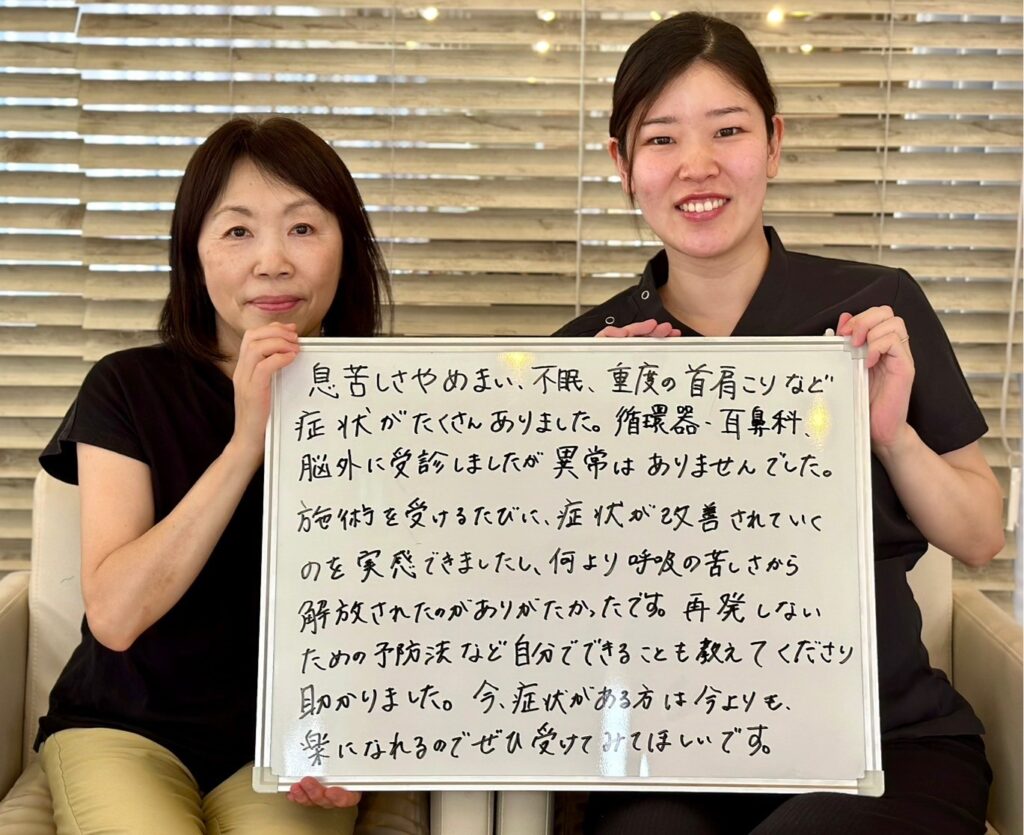 息苦しさやめまい、不眠、重度の首肩こりなど
症状がたくさんありました。循環器・耳鼻科、
脳外に受診しましたが異常はありませんでした。
施術を受けるたびに、症状が改善されていく
のを実感できましたし、何より呼吸の苦しさから
解放されたのがありがたかったです。再発しない
ための予防法など自分でできることも教えてくださり
助かりました。今、症状がある方は今よりも、
楽になれるのでぜひ受けてみてほしいです。